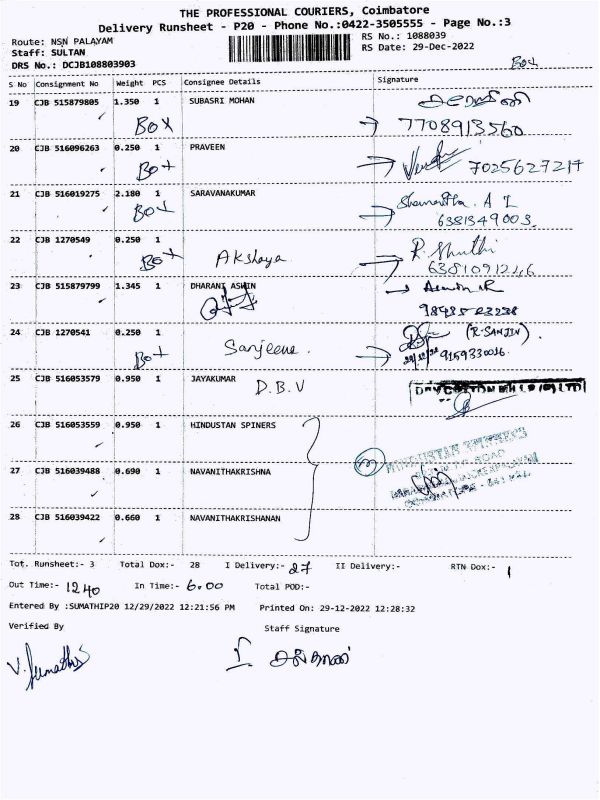 THE PROFESSIONAL COURIERS, Coimbatore
Delivery Runsheet - P20 - Phone No.:0422-3505555 - Page No.:3
Route: NSN PALAYAM
RS No.: 1088039
Staff: SULTAN
RS Date: 29-Dec-2022
DRS No.: DCJB108803903
Box
S No Consignment No Weight PCS Consignee Details Signature
19 CJB 515879805 1.350 1 SUBASRI MOHAN
Box 7708913560
20 CJB 516096263 0.250 1 PRAVEEN
Box 7025627217
21 CJB 516019275 2.180 1 SARAVANAKUMAR
Box 6381349003
22 CJB 1270549 0.250 1
Box Akshaya 6381091246
23 CJB 515879799 1.345 1 DHARANI ASWIN
24 CJB 1270541 0.250 1
Box Sanjeene. (R.SANJIN)
9159330016
25 CJB 516053579 0.950 1 JAYAKUMAR
D.B.V
26 CJB 516053559 0.950 1 HINDUSTAN SPINERS
HINDUSTAN SPINNERS
27 CJB 516039488 0.690 1 NAVANITHAKRISHNA
28 CJB 516039422 0.660 1 NAVANITHAKRISHANAN
Tot. Runsheet:- 3 Total Dox:- 28 I Delivery:- 27 II Delivery:- RTN Dox:- 1
Out Time:- 1240 In Time:- 6.00 Total POD:-
Entered By :SUMATHIP20 12/29/2022 12:21:56 PM Printed On: 29-12-2022 12:28:32
Verified By Staff Signature
V. Sumathi சுல்தான்